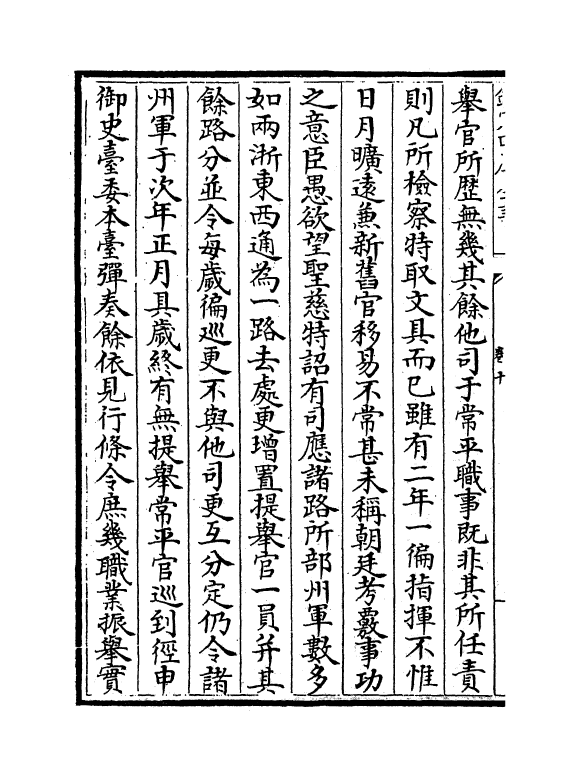 舉官所歴無幾其餘他司于常平職事既非其所任責
則凡所檢察特取文具而已雖有二年一徧指揮不惟
日月曠遠兼新舊官移易不常甚未稱朝廷考覈事功
之意臣愚欲望聖慈特詔有司應諸路所部州軍數多
如兩浙東西通為一路去處更增置提舉官一員并其
餘路分並令每歲徧巡更不與他司更互分定仍令諸
州軍于次年正月具歲終有無提舉常平官巡到徑申
御史臺委本臺彈奏餘依見行條令庶幾職業振舉實
卷十